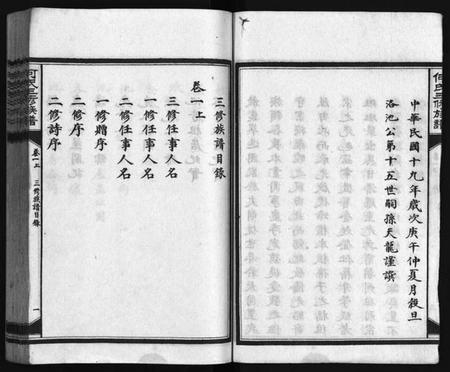 何氏三修族譜
中華民國十九年歲次庚午仲夏月穀旦
洛池公第十五世嗣孫天龍謹譔
三修族譜目錄
卷一上
三修任事人名
一修任事人名
二修任事人名
一修贈序
二修序
二修詩序
何氏三修族譜
卷一上
三修族譜目錄
一